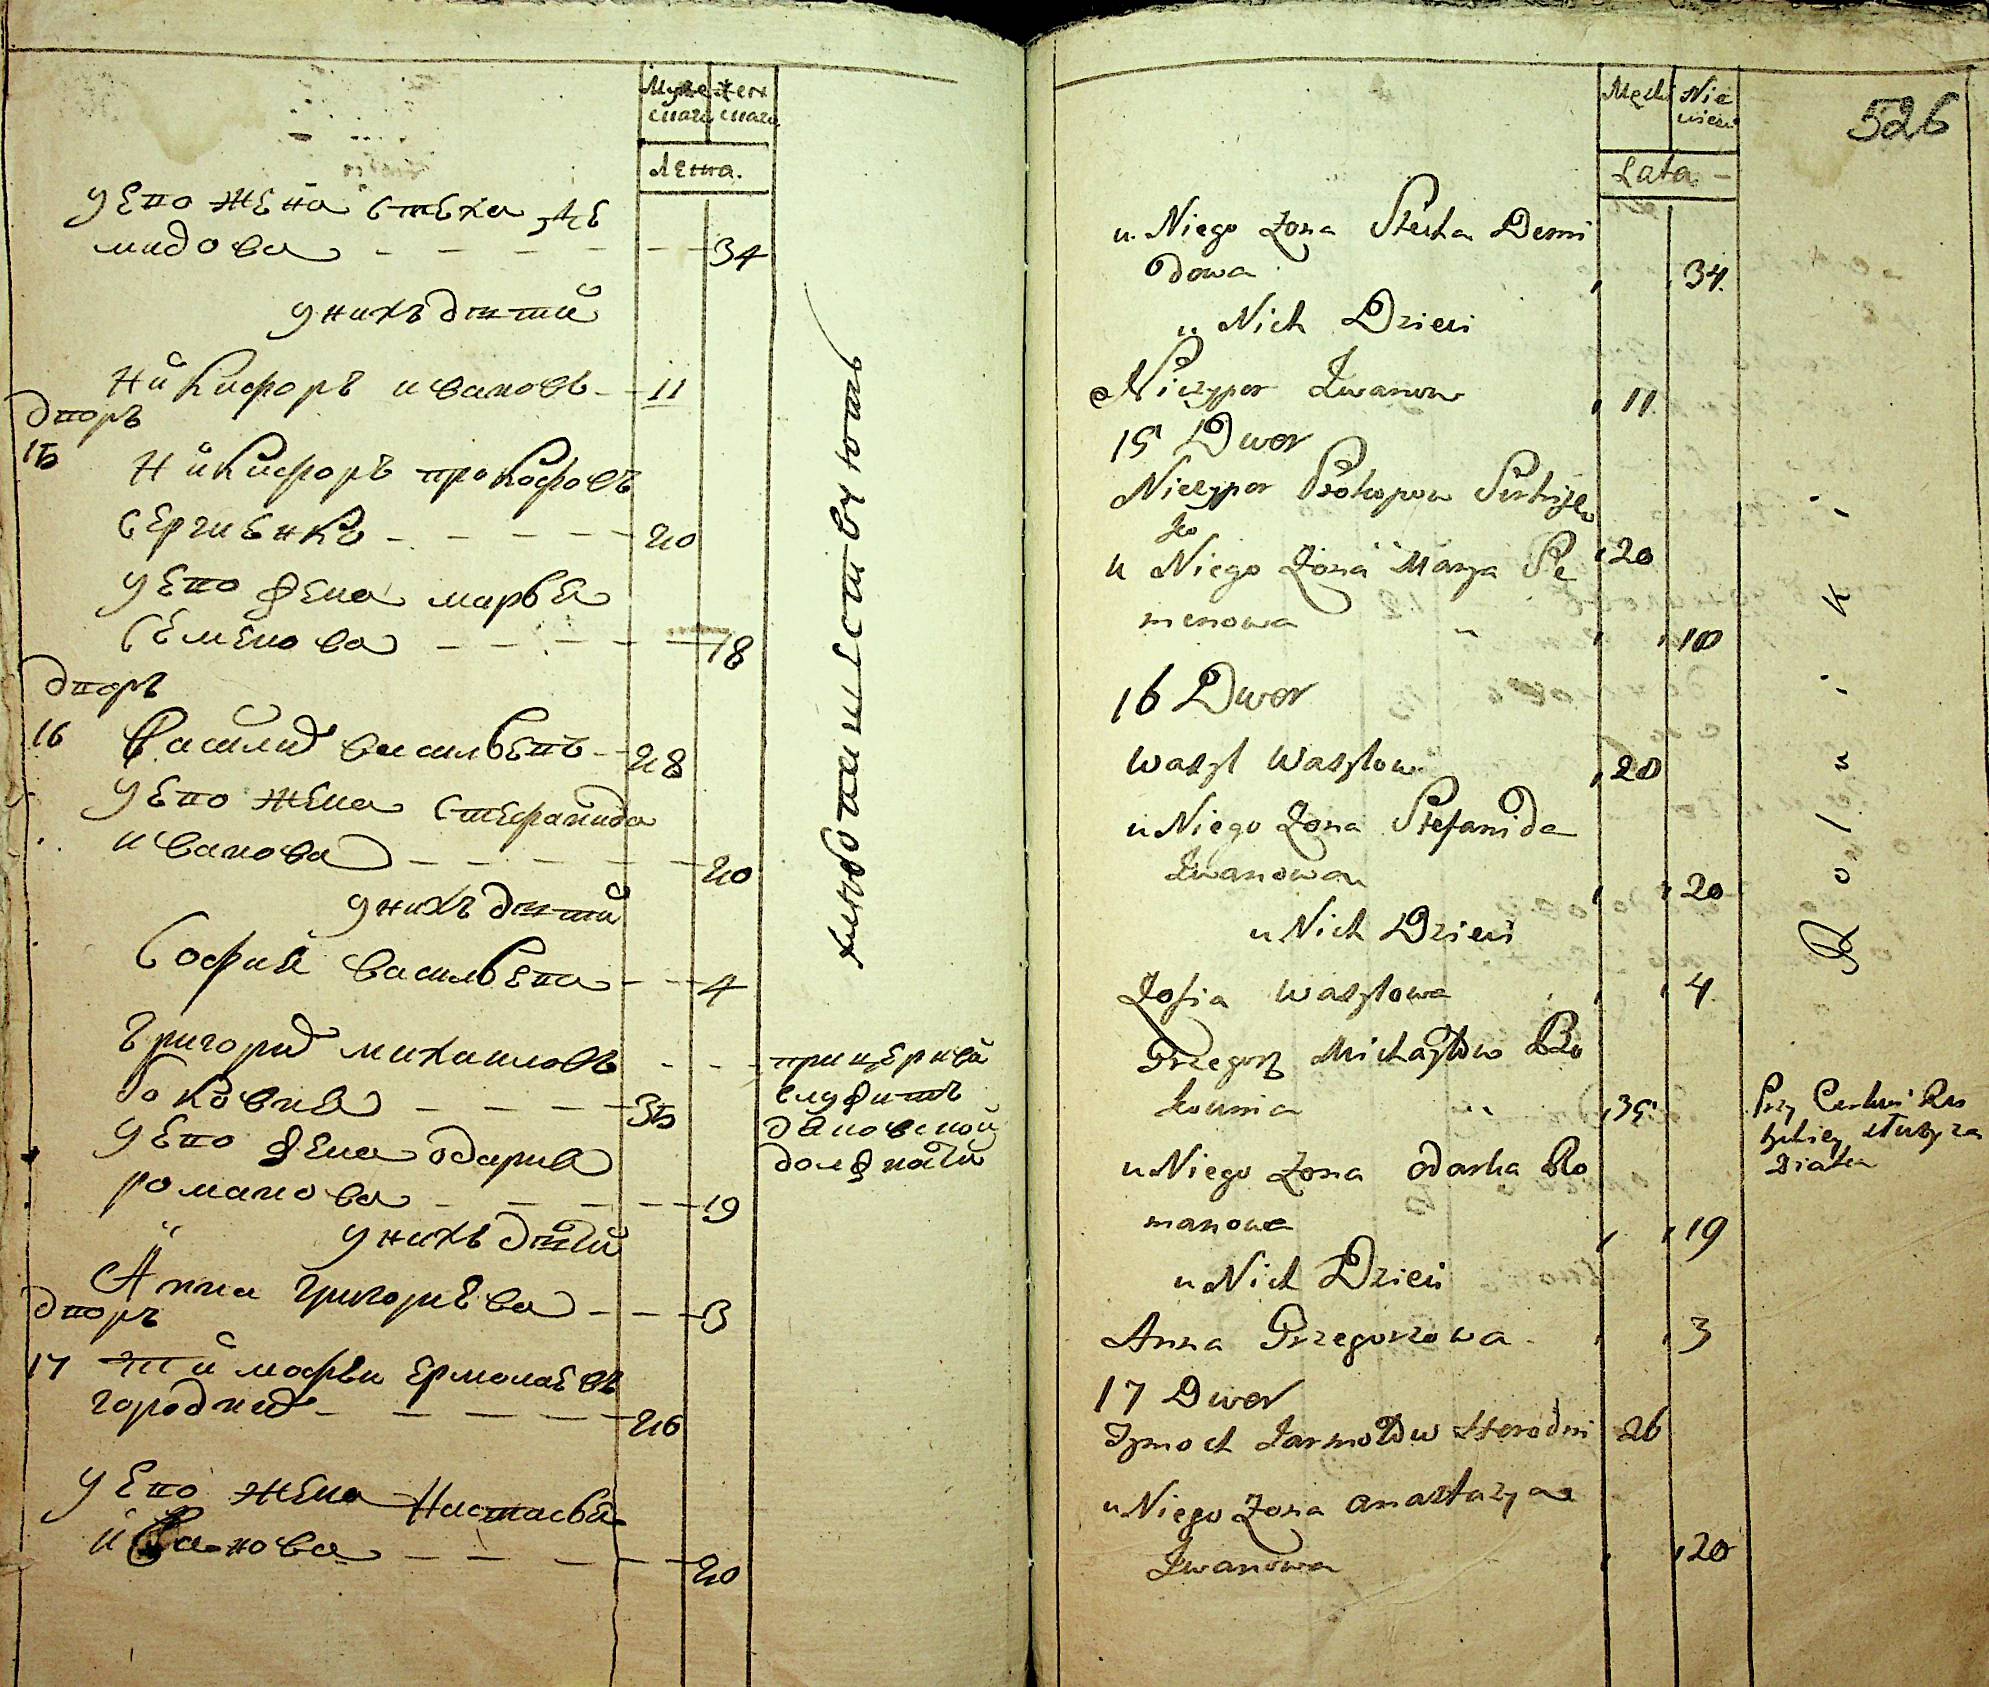 Муже
скаго
жен
скаго
Лета.
у Его жена Стеха Де
мидова 34
у нихъ дѣтей
Никифоръ Ивановъ 11
дворъ
15 Никифоръ Прокофовъ
Сергиенко 20
у Его жена Марва
Семенова 18
дворъ
16 Василий Васильевъ 28
у Его жена Стефанида
Иванова 20
у нихъ дѣтей
София Васильева 4
Григорий Михайловъ
35
у Его жена Одария
Романова 19
у нихъ дѣтей
Анна Григориева 3
дворъ
17 Тимофѣи Ермолаевъ
Городний 26
у Его жена Настасья
Иванова 20
хлѣбопашествуютъ
при церкви
служитъ
дяковской
должности
526
Męski
Nie
wieści
Lata
u Niego Żona Stecha Demi
dowa 34
u Nich Dzieci
Niczypor Iwanow 11
15 Dwor
Niczypor Prokopow Serhijen
ko 20
u Niego Żona Marya Se
menowa 18
16 Dwor
Wasyl Wasylow 28
u Niego Żona Stefanida
Iwanowa 20
u Nich Dzieci
Zofia Wasylowa 4
Grzegorz Michayłow Bo
35
u Niego Żona Odarka Ro
manowa 19
u Nich Dzieci
Anna Grzegorzowa 3
17 Dwor
Tymoch Jarmołow Horodni 26
u Niego Żona Anastazya
Iwanowa 20
Rolniki
Przy Cerkwi
służy za
Diaka